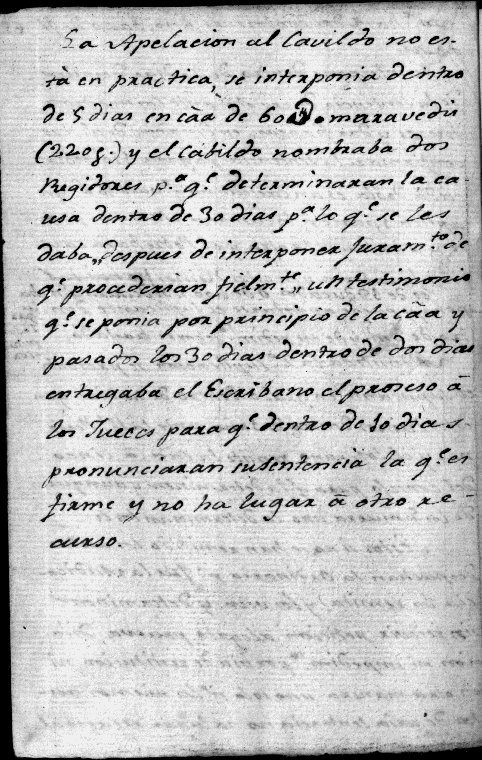 La Apelacion al Cavildo no es-
tà en practica, se interponia dentro
de 5 dias en cãa de 60 maravedis
(220g.) y el Cabildo nombraba dos
Regidores p.ª q.ᵉ determinaran la ca-
usa dentro de 30 dias p.ª lo q.ᵉ se les
daba, despues de interponer Juram.ᵗᵒ de
q.ᵉ procederian fielm.ᵗᵉ, un testimonio
q.ᵉ se ponia por principio de la cãa y
pasados los 30 dias dentro de dos dias
entregaba el Escribano el proseso â
los Jueces para q.ᵉ dentro de 10 dias
pronunciaran su sentencia la q.ᵉ es
firme y no ha lugar â otro re-
curso.